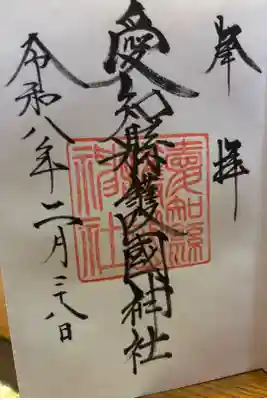 奉拝
愛知縣護國神社
令和八年二月二十八日
愛知縣
護國
神社